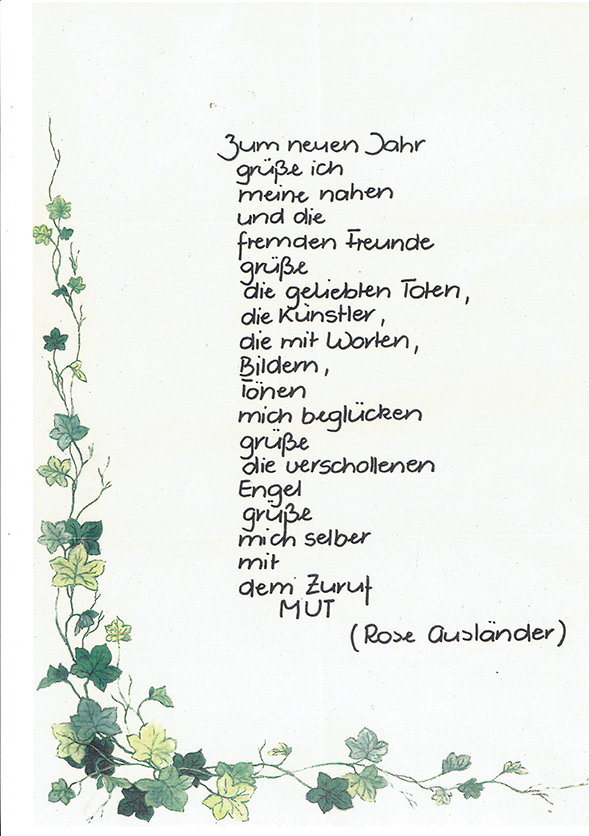 Zum neuen Jahr
grüße ich
meine nahen
und die
fremden Freunde
grüße
die geliebten Toten,
die Künstler,
die mit Worten,
Bildern,
Tönen
mich beglücken
grüße
die verschollenen
Engel
grüße
mich selber
mit
dem Zuruf
MUT
(Rose Ausländer)